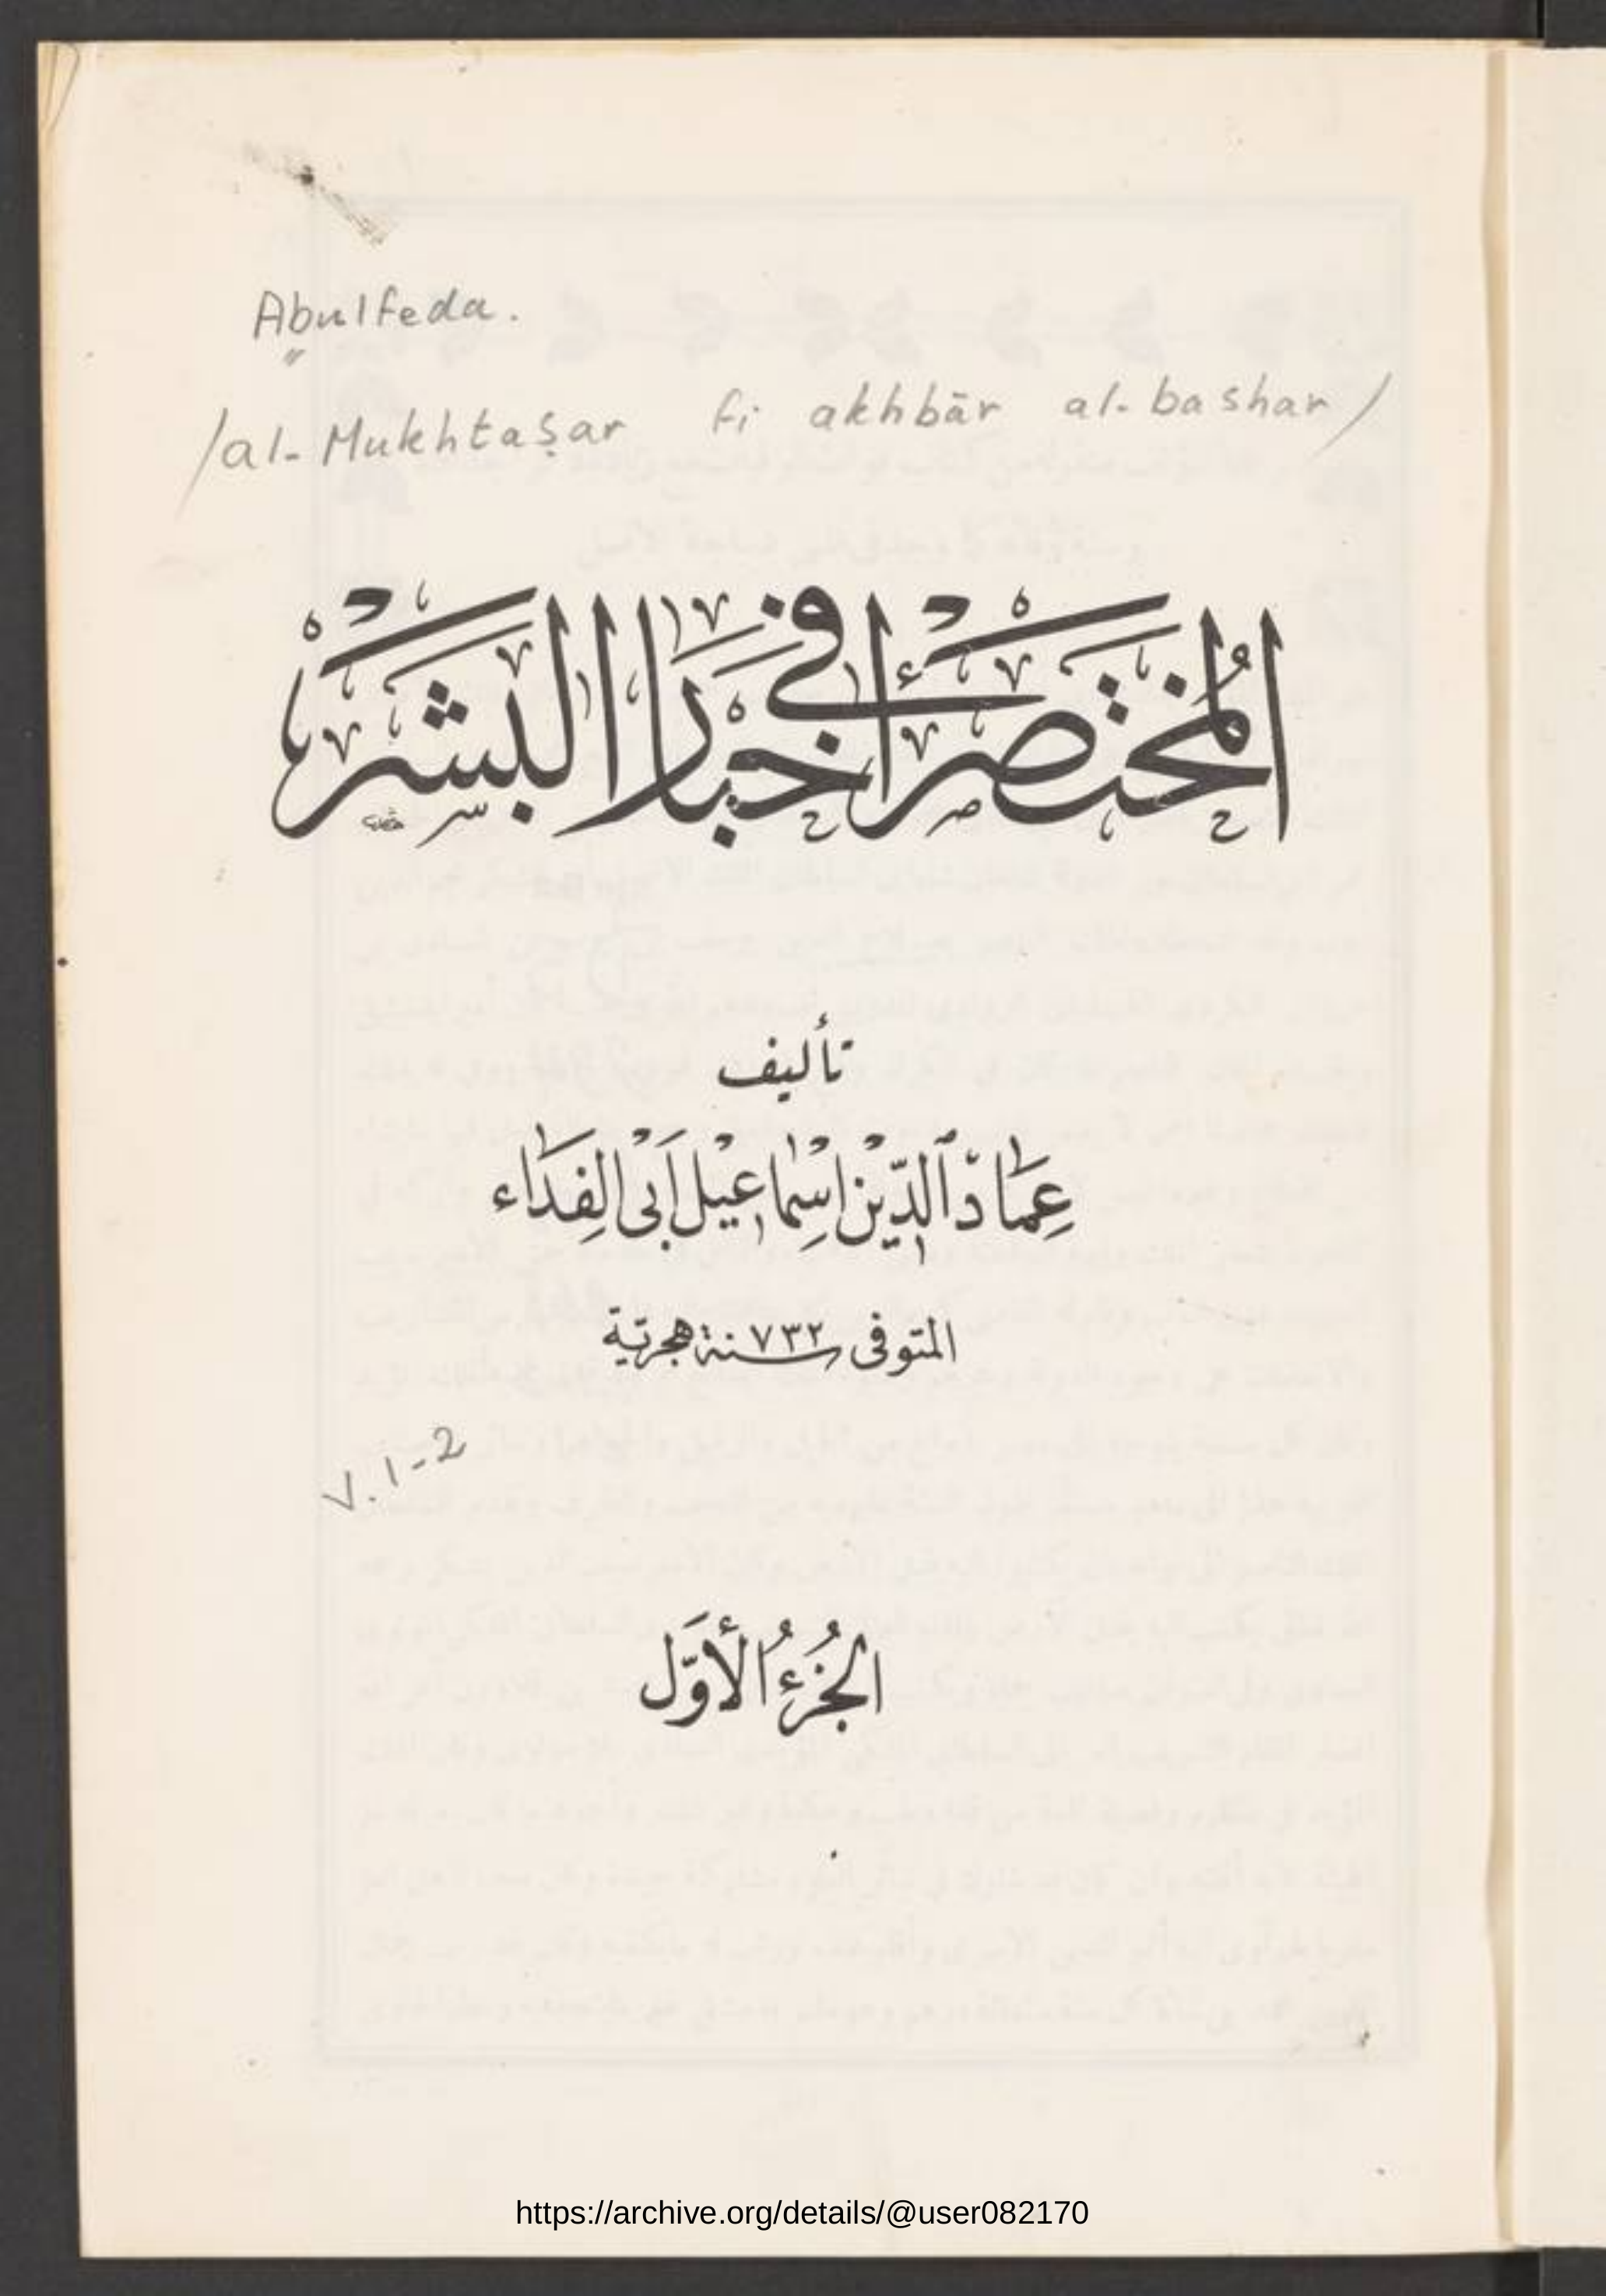 Abulfeda.
/al-Mukhtaṣar fi akhbār al-bashar/
المُختصر في أخبار البشر
تأليف
عِمَادُ الدِّيْن اِسْمَاعِيْل أَبِى الفِدَاء
المتوفى سنة ٧٣٢ هجريّة
v. 1-2
الجُزءُ الأوَّل
https://archive.org/details/@user082170